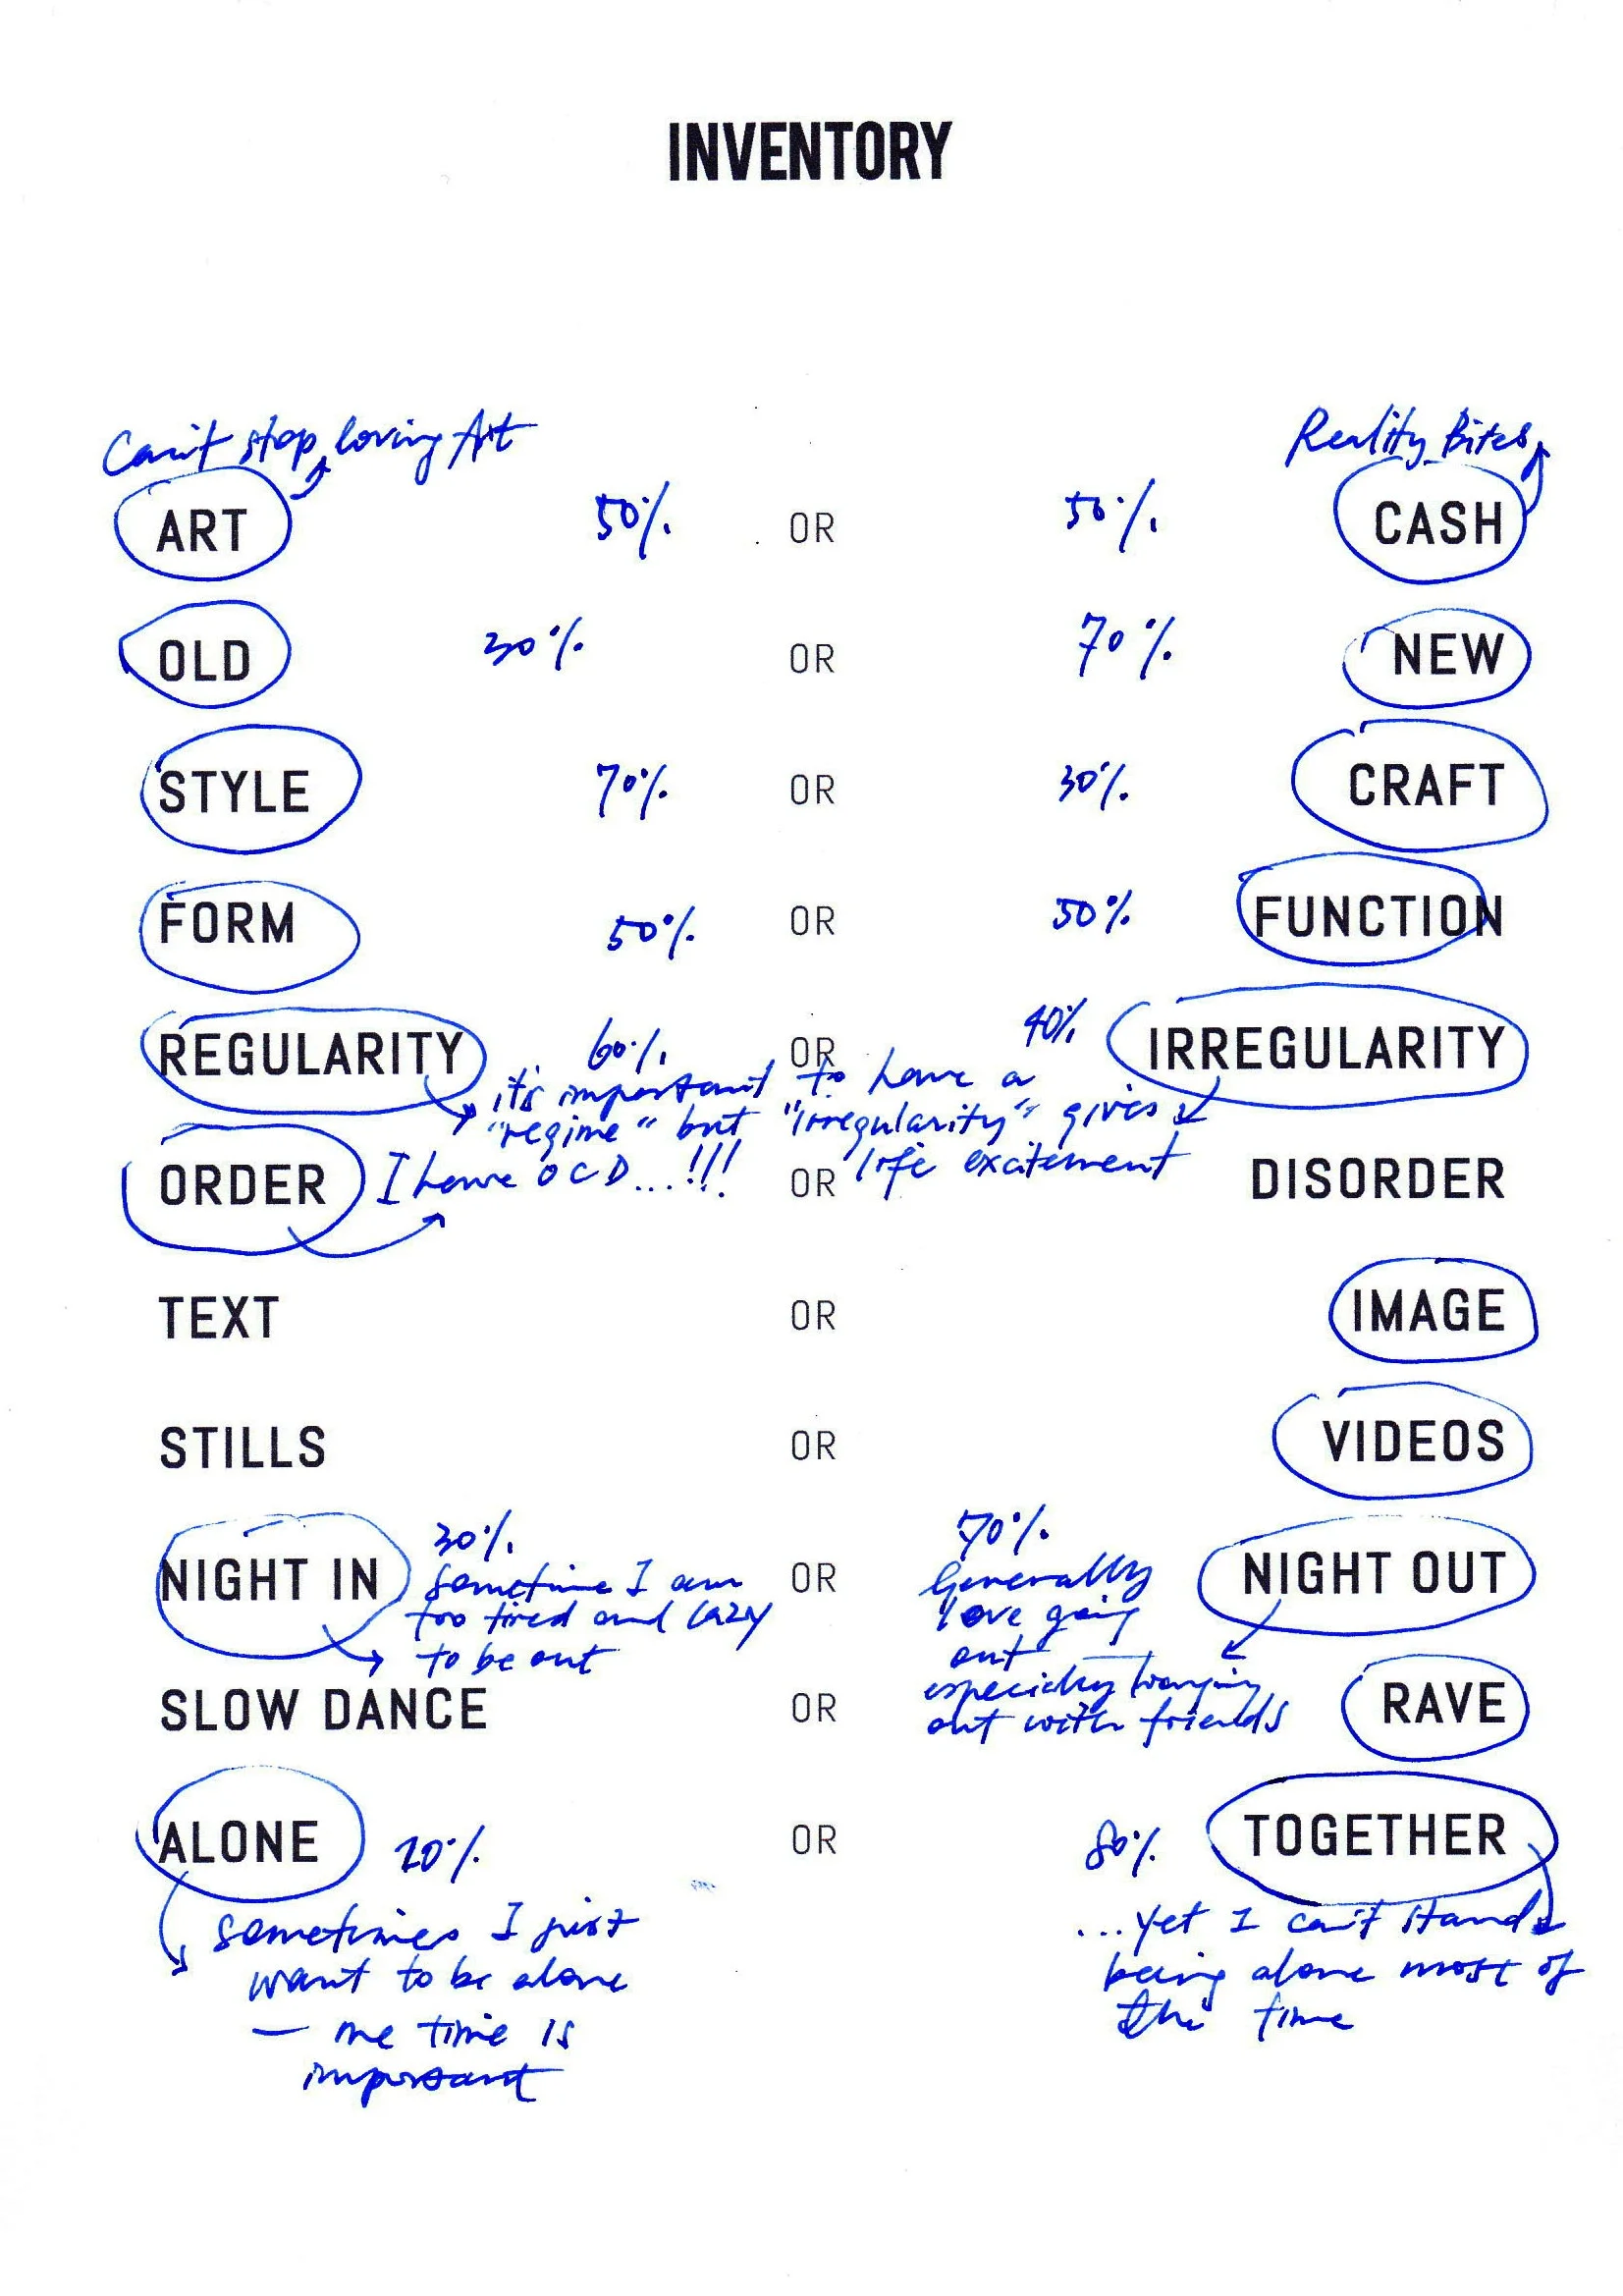 INVENTORY
Can't stop loving Art
Reality Bites
ART 50% OR 50% CASH
OLD 30% OR 70% NEW
STYLE 70% OR 30% CRAFT
FORM 50% OR 50% FUNCTION
REGULARITY 60% OR 40% IRREGULARITY
it's important to have a
"regime" but "irregularity" gives
life excitement
ORDER I have OCD...!!! OR DISORDER
TEXT OR IMAGE
STILLS OR VIDEOS
NIGHT IN 30% OR 70% NIGHT OUT
sometime I am
too tired and lazy
to be out
Generally
love going
out
especially hanging
out with friends
SLOW DANCE OR RAVE
ALONE 20% OR 80% TOGETHER
sometimes I just
want to be alone
— me time is
important
...yet I can't stand
being alone most of
the time